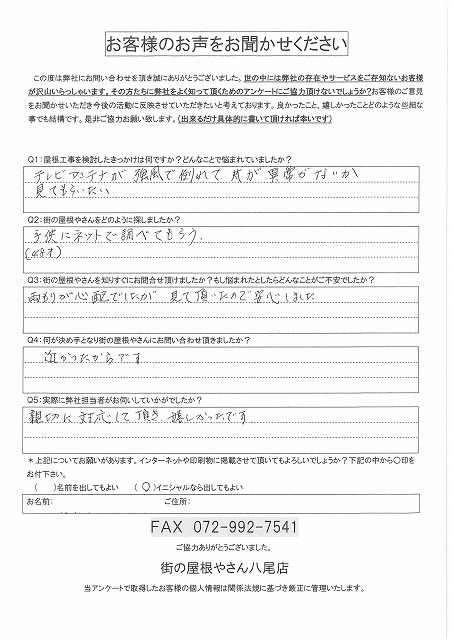 お客様のお声をお聞かせください
この度は弊社にお問い合わせを頂き誠にありがとうございました。世の中には弊社の存在やサービスをご存知ないお客様
が沢山いらっしゃいます。その方たちに弊社をよく知って頂くためのアンケートにご協力頂けないでしょうか?お客様のご意見
をお聞かせいただき今後の活動に反映させていただきたいと考えております。良かったこと、嬉しかったことどのような些細な
事でも結構です。是非ご協力お願い致します。(出来るだけ具体的に書いて頂ければ幸いです)
Q1:屋根工事を検討したきっかけは何ですか?どんなことで悩まれていましたか?
テレビアンテナが強風で倒れて瓦が異常がないか
見てもらいたい
Q2:街の屋根やさんをどのように探しましたか?
子供にネットで調べてもらう.
(48才)
Q3:街の屋根やさんを知りすぐにお問合せ頂けましたか?もし悩まれたとしたらどんなことがご不安でしたか?
雨もりが心配でしたが見て頂いたので安心しました
Q4:何が決め手となり街の屋根やさんにお問い合わせ頂きましたか?
近かったからです
Q5:実際に弊社担当者がお伺いしていかがでしたか?
親切に対応して頂き、嬉しかったです
*上記についてお願いがあります。インターネットや印刷物に掲載させて頂いてもよろしいでしょうか?下記の中から○印を
お付下さい。
( )名前を出してもよい (○)イニシャルなら出してもよい
お名前: ご住所:
FAX 072-992-7541
ご協力ありがとうございました。
街の屋根やさん八尾店
当アンケートで取得したお客様の個人情報は関係法規に基づき厳正に管理いたします。